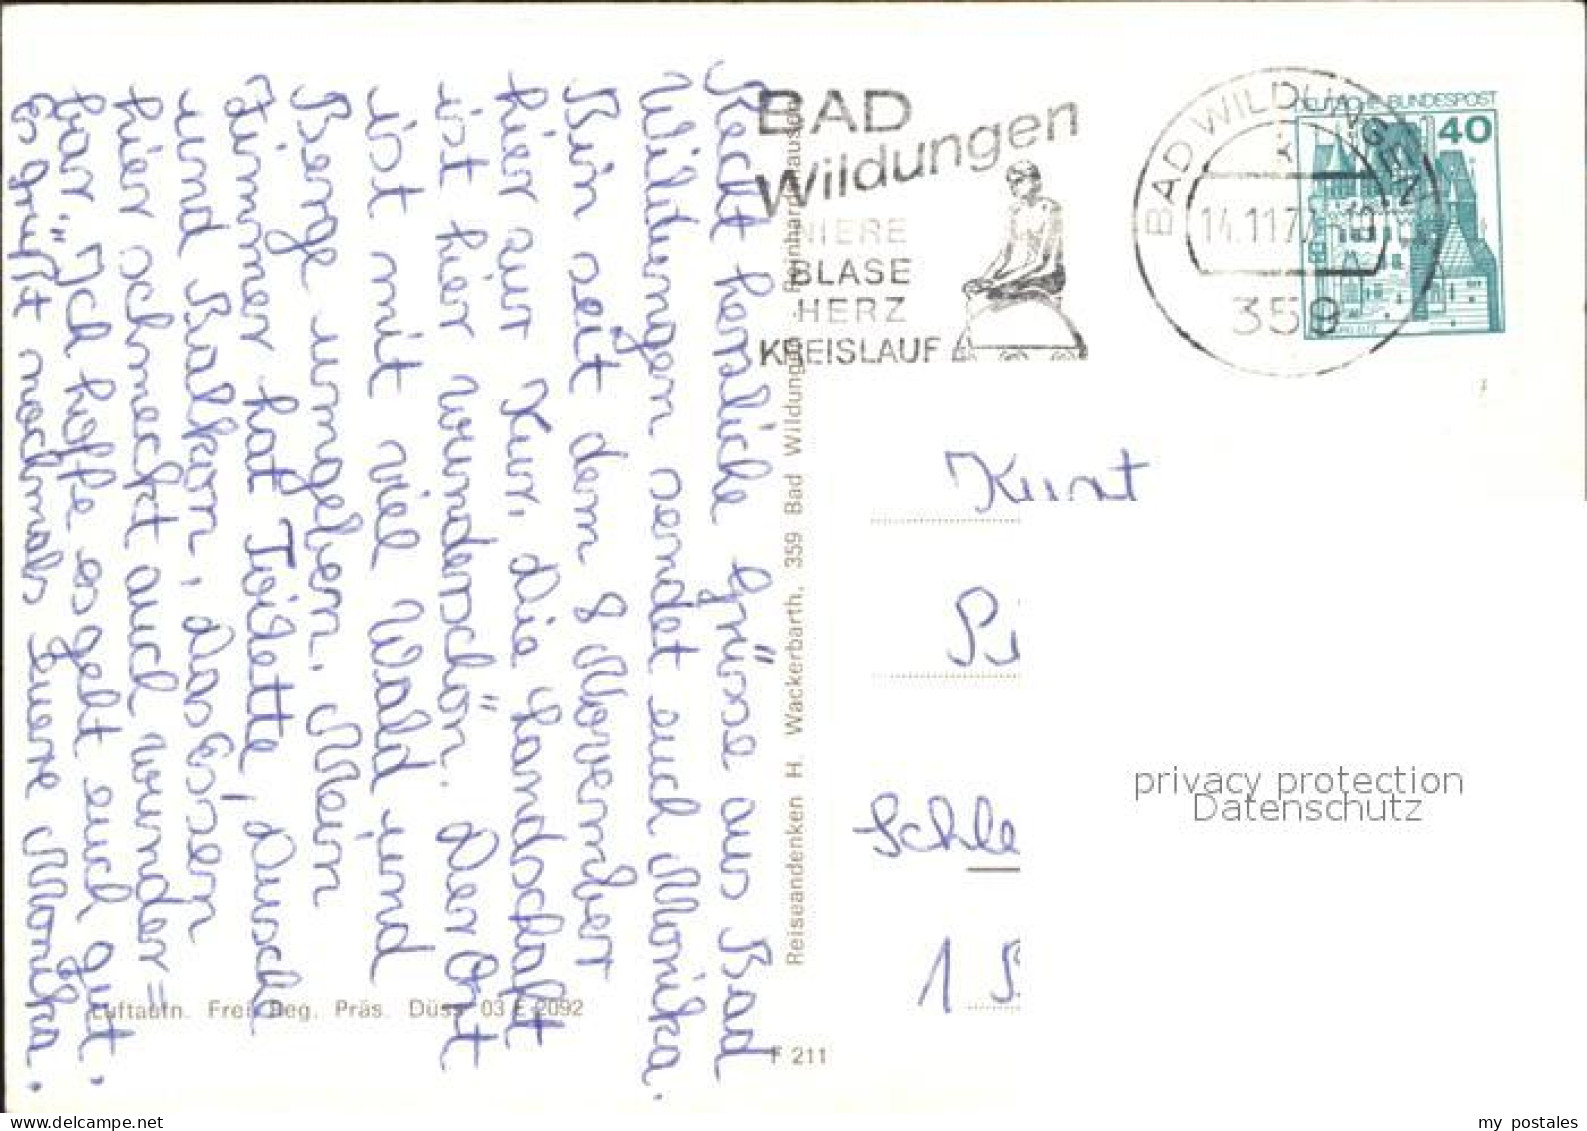 Recht herzliche Grüsse aus Bad
Wildungen sendet euch Monika.
Bin seit dem 8 November
hier zur Kur. Die Landschaft
ist hier wunderschön. Der Ort
ist mit viel Wald und
Berge umgeben. Mein
Zimmer hat Toilette, Dusche
und Balkon, das Essen
hier schmeckt auch wunder=
bar. Ich hoffe es geht euch gut.
Es grüßt nochmals Euere Monika.
Luftaufn. Frei. Reg. Präs. Düss 03 E 2092
F 211
Reiseandenken H. Wackerbarth, 359 Bad Wildungen
BAD
Wildungen
NIERE
BLASE
HERZ
KREISLAUF
BAD WILDUNGEN
14.11.77
359
DEUTSCHE BUNDESPOST
40
Kurt
Schle
1
privacy protection
Datenschutz
delcampe.net
my_postales